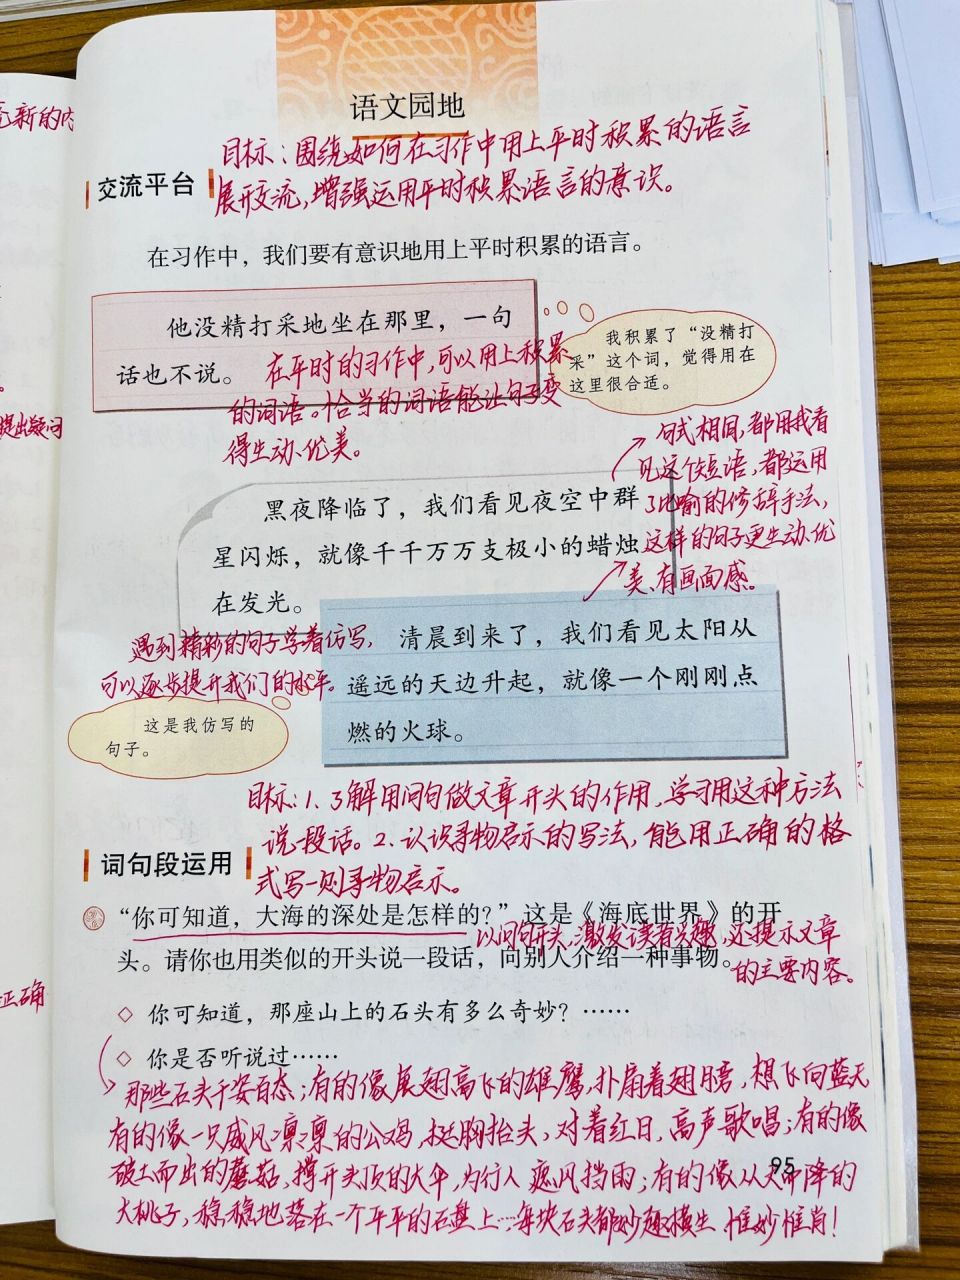 意新的内
提出疑问
正确
语文园地
目标：围绕如何在习作中用上平时积累的语言
展开交流，增强运用平时积累语言的意识。
交流平台
在习作中，我们要有意识地用上平时积累的语言。
他没精打采地坐在那里，一句
话也不说。
我积累了“没精打
采”这个词，觉得用在
这里很合适。
在平时的习作中，可以用上积累
的词语。恰当的词语能让句子变
得生动、优美。
句式相同，都用我看
见这个短语，都运用
了比喻的修辞手法，
这样的句子更生动、优
美、有画面感。
黑夜降临了，我们看见夜空中群
星闪烁，就像千千万万支极小的蜡烛
在发光。
遇到精彩的句子学着仿写，
可以逐步提升我们的水平。
清晨到来了，我们看见太阳从
遥远的天边升起，就像一个刚刚点
燃的火球。
这是我仿写的
句子。
目标：1、了解用问句做文章开头的作用，学习用这种方法
说一段话。2、认识寻物启示的写法，能用正确的格
式写一则寻物启示。
词句段运用
“你可知道，大海的深处是怎样的？”这是《海底世界》的开
头。请你也用类似的开头说一段话，向别人介绍一种事物。
以问句开头，激发读者兴趣，还提示文章
的主要内容。
◇ 你可知道，那座山上的石头有多么奇妙？……
◇ 你是否听说过……
那些石头千姿百态；有的像展翅高飞的雄鹰，扑扇着翅膀，想飞向蓝天
有的像一只威风凛凛的公鸡，挺胸抬头，对着红日，高声歌唱；有的像
破土而出的蘑菇，撑开头顶的大伞，为行人遮风挡雨；有的像从天而降的
大桃子，稳稳地落在一个平平的石盘上…每块石头都妙趣横生、惟妙惟肖！
95